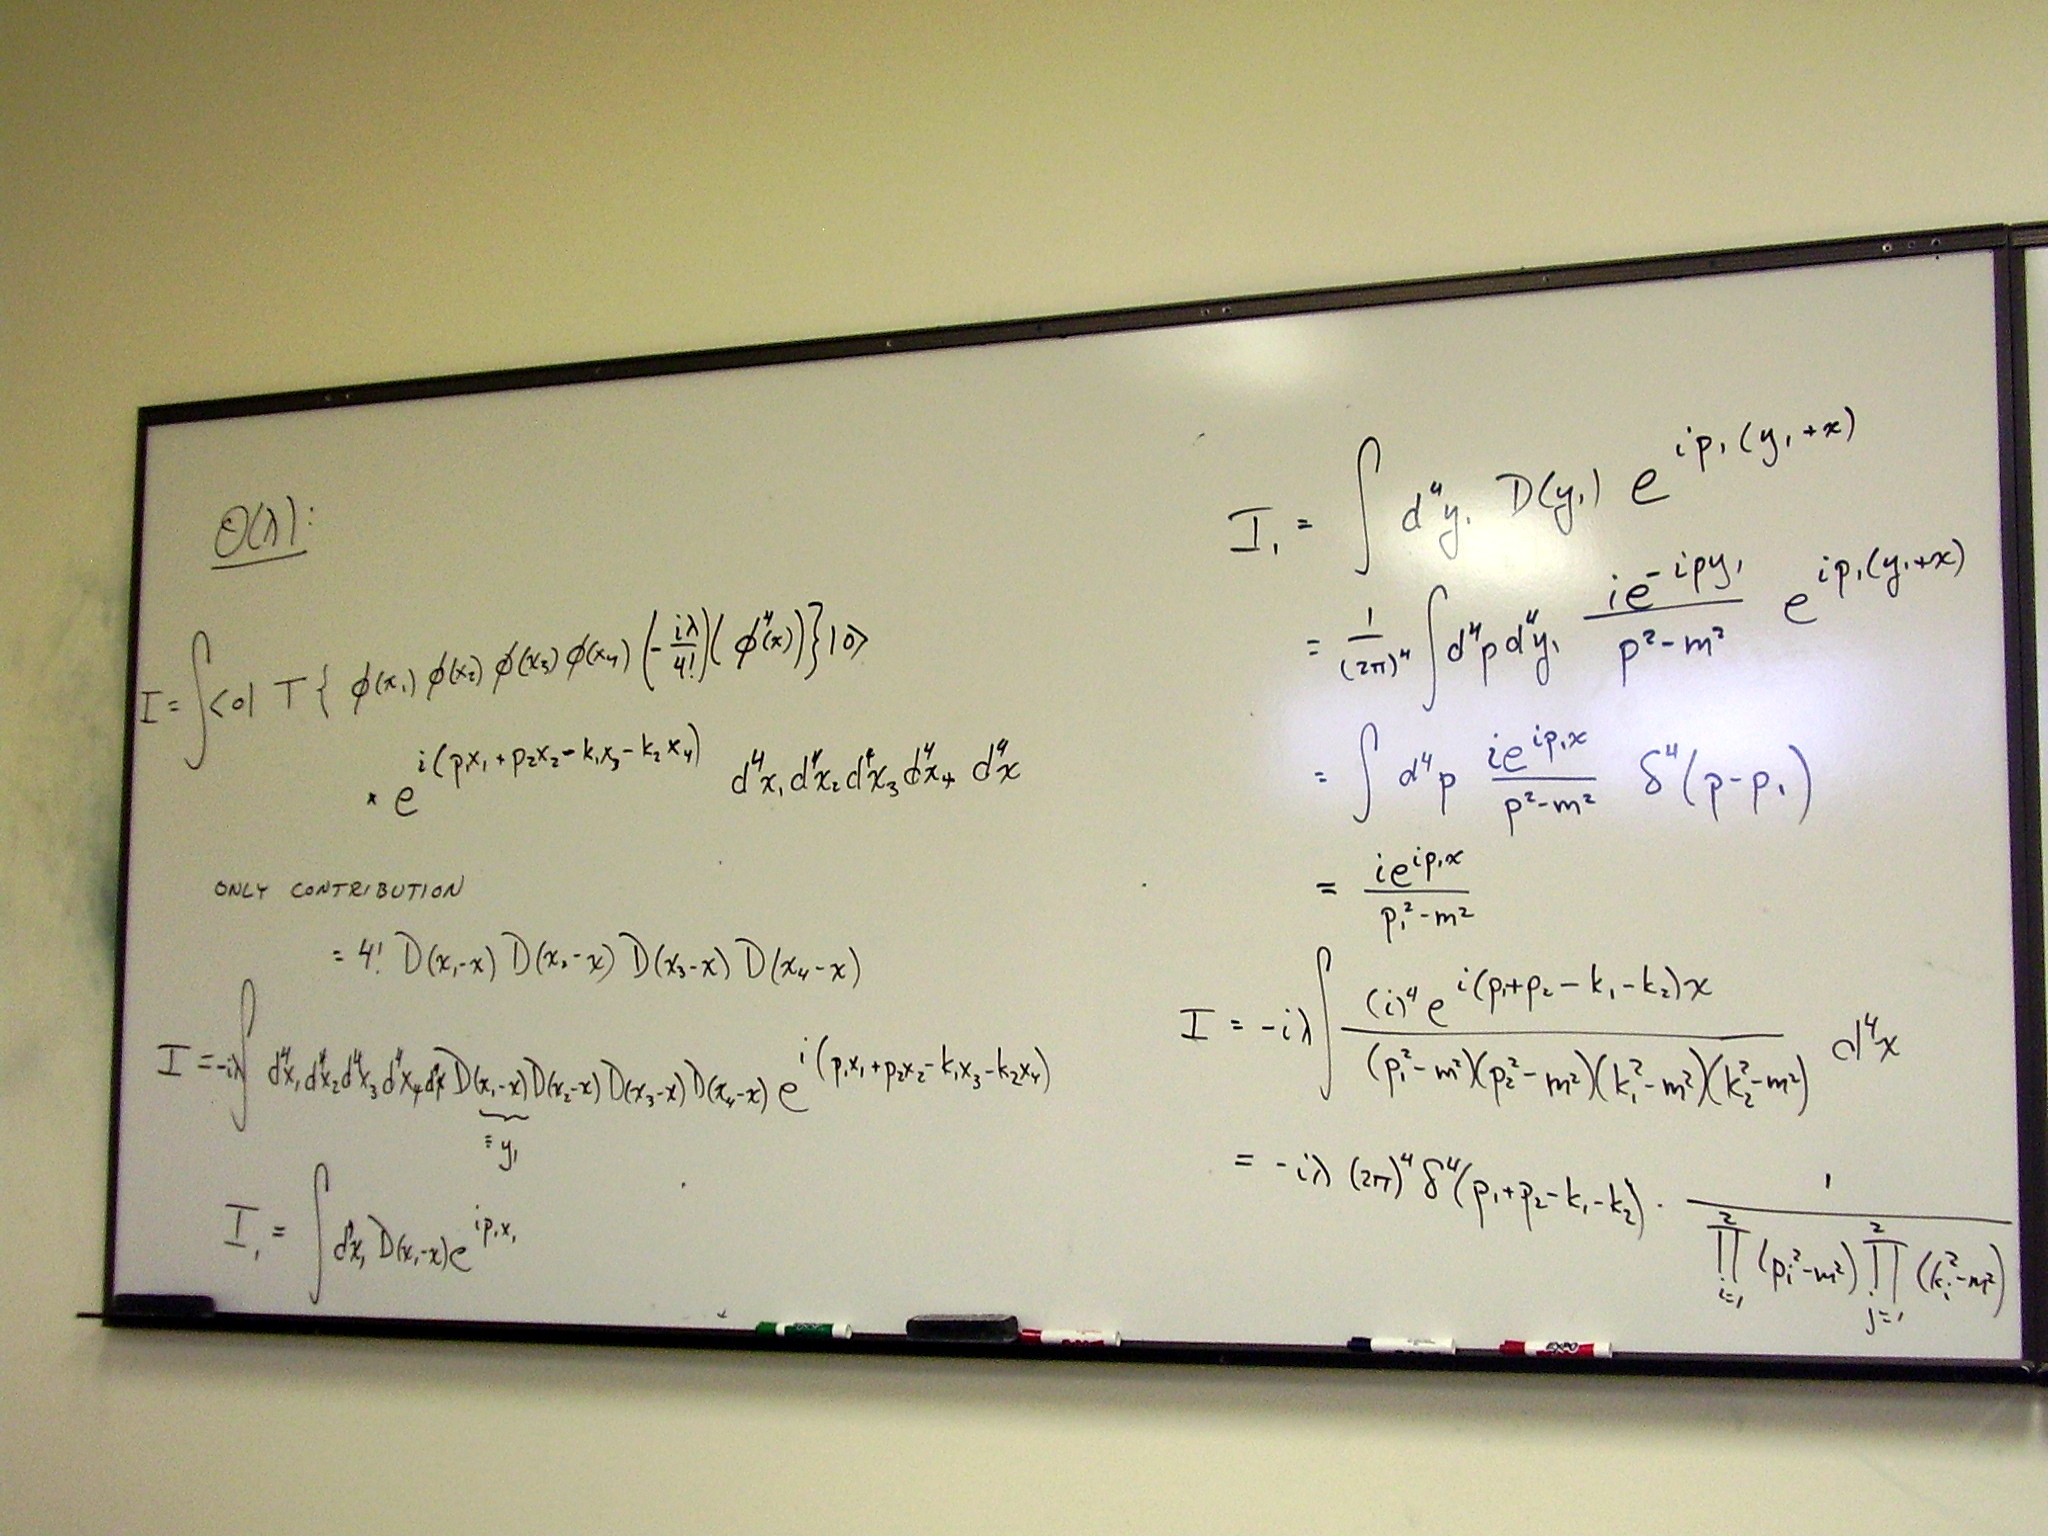 O(λ):
I = ∫<0| T{ φ(x₁) φ(x₂) φ(x₃) φ(x₄) (-iλ/4!)( φ⁴(x))}|0>
* e^{i(p₁x₁ + p₂x₂ - k₁x₃ - k₂x₄)} d⁴x₁ d⁴x₂ d⁴x₃ d⁴x₄ d⁴x
ONLY CONTRIBUTION
= 4! D(x₁-x) D(x₂-x) D(x₃-x) D(x₄-x)
I = -iλ∫ d⁴x₁ d⁴x₂ d⁴x₃ d⁴x₄ d⁴x D(x₁-x) D(x₂-x) D(x₃-x) D(x₄-x) e^{i(p₁x₁ + p₂x₂ - k₁x₃ - k₂x₄)}
≡ y₁
I₁ = ∫ d⁴x₁ D(x₁-x) e^{ip₁x₁}
I₁ = ∫ d⁴y₁ D(y₁) e^{ip₁(y₁+x)}
= 1/(2π)⁴ ∫ d⁴p d⁴y₁ ie^{-ipy₁}/(p²-m²) e^{ip₁(y₁+x)}
= ∫ d⁴p ie^{ip₁x}/(p²-m²) δ⁴(p-p₁)
= ie^{ip₁x}/(p₁²-m²)
I = -iλ ∫ (i)⁴ e^{i(p₁+p₂-k₁-k₂)x}/((p₁²-m²)(p₂²-m²)(k₁²-m²)(k₂²-m²)) d⁴x
= -iλ (2π)⁴ δ⁴(p₁+p₂-k₁-k₂) · 1/(∏_{i=1}^{2} (pᵢ²-m²) ∏_{j=1}^{2} (kᵢ²-m²))
EXPO